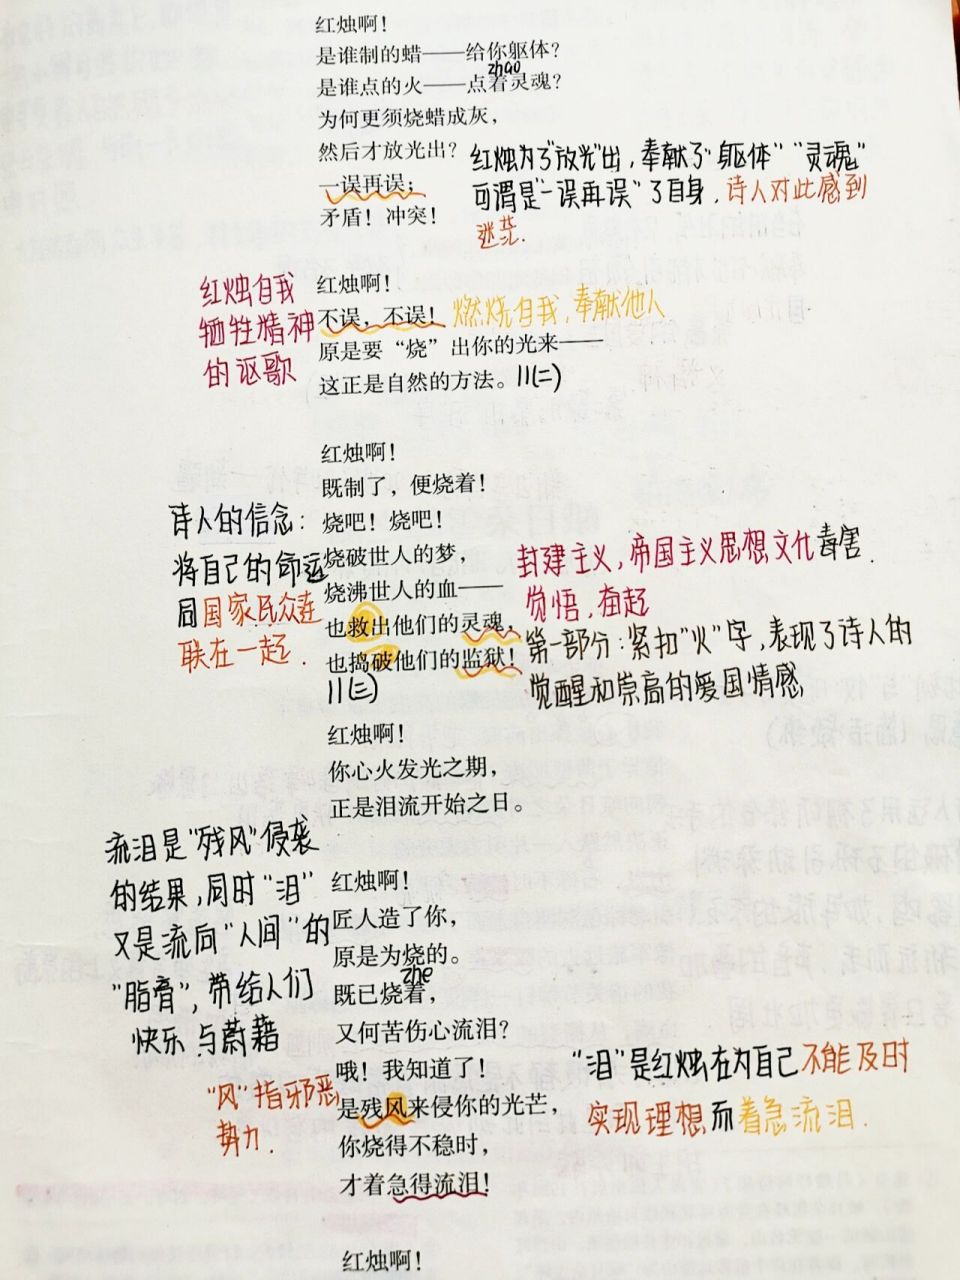 红烛啊！
是谁制的蜡——给你躯体？
zhao
是谁点的火——点着灵魂？
为何更须烧蜡成灰，
然后才放光出？
一误再误；
矛盾！冲突！
红烛为了"放光"出，奉献了"躯体""灵魂"
可谓是"一误再误"了自身，诗人对此感到
迷茫．
红烛自我
牺牲精神
的讴歌
红烛啊！
不误，不误！
燃烧自我，奉献他人
原是要“烧”出你的光来——
这正是自然的方法。
||(二)
红烛啊！
既制了，便烧着！
烧吧！烧吧！
烧破世人的梦，
烧沸世人的血——
也救出他们的灵魂，
也捣破他们的监狱！
||(三)
诗人的信念：
将自己的命运
同国家民众连
联在一起．
封建主义，帝国主义思想文化毒害．
觉悟，奋起
第一部分：紧扣"火"字，表现了诗人的
觉醒和崇高的爱国情感
红烛啊！
你心火发光之期，
正是泪流开始之日。
流泪是"残风"侵袭
的结果，同时"泪"
又是流向"人间"的
"脂膏"，带给人们
快乐与蔚藉
红烛啊！
匠人造了你，
原是为烧的。
zhe
既已烧着，
又何苦伤心流泪？
哦！我知道了！
是残风来侵你的光芒，
你烧得不稳时，
才着急得流泪！
"风"指邪恶
势力．
"泪"是红烛在为自己不能及时
实现理想而着急流泪．
红烛啊！